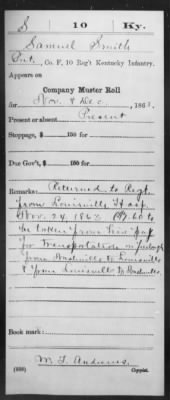 S | 10 | Ky.
Samuel Smith
Pvt., Co. F, 10 Reg't Kentucky Infantry.
Appears on
Company Muster Roll
for Nov. & Dec., 1863.
Present or absent Present
Stoppage, $ 100 for
Due Gov't, $ 100 for
Remarks: Returned to Regt
from Louisville Hosp.
Nov. 24, 1863 $7.60 to
be taken from his pay
for Transportation on furlough
from Nashville to Louisville
& from Louisville to Nashville.
Book mark:
W. T. Andrews.
(858) Copyist.